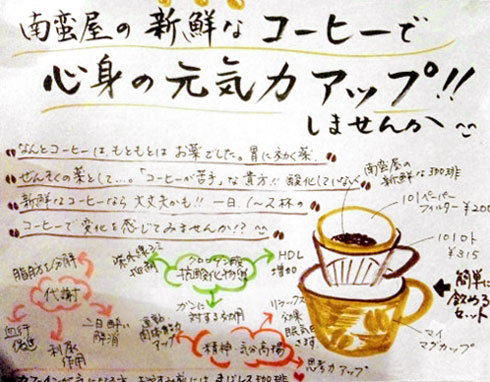 南蛮屋の新鮮なコーヒーで
心身の元気力アップ!!
しませんか
なんとコーヒーは、もともとは お薬でした。胃に効く薬
ぜんそくの薬として…。「コーヒーが苦手」な貴方!! 酸化していない
新鮮なコーヒーなら 大丈夫かも!! 一日、1〜2杯の
コーヒーで 変化を感じてみませんか!?
南蛮屋の
新鮮な珈琲
101ペーパー
フィルター ¥200
101ロト
¥315
簡単に
飲める
セット
マイ
マグカップ
脂肪を分解
代謝
血行
促進
利尿
作用
二日酔い
解消
クロロゲン酸
抗酸化物質
HDL
増加
ガンに
対する効用
運動
アップ
精神
高揚
リラックス
効果
眠気
さます
思考力アップ